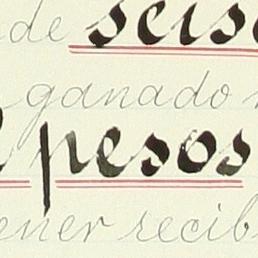 de seis
ganado
pesos
ener recib